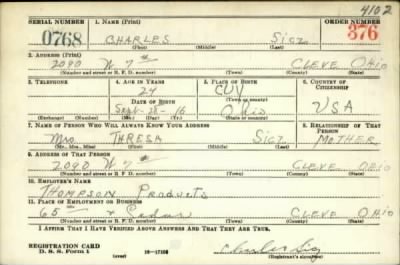 4102
SERIAL NUMBER 1. NAME (Print) ORDER NUMBER
0768 CHARLES Sicz 376
(First) (Middle) (Last)
2. ADDRESS (Print)
2090 W 7th CLEVE OHIO
(Number and street or R. F. D. number) (Town) (County) (State)
3. TELEPHONE 4. AGE IN YEARS 5. PLACE OF BIRTH 6. COUNTRY OF CITIZENSHIP
24 CUY
DATE OF BIRTH (Town or county)
Sept-28-16 Ohio USA
(Exchange) (Number) (Mo.) (Day) (Yr.) (State or country)
7. NAME OF PERSON WHO WILL ALWAYS KNOW YOUR ADDRESS 8. RELATIONSHIP OF THAT PERSON
Mrs THRESA Sicz MOTHER
(Mr., Mrs., Miss) (First) (Middle) (Last)
9. ADDRESS OF THAT PERSON
2090 W 7th CLEVE OHIO
(Number and street or R. F. D. number) (Town) (County) (State)
10. EMPLOYER'S NAME
THOMPSON Products
11. PLACE OF EMPLOYMENT OR BUSINESS
65 Cedar CLEVE OHIO
(Number and street or R. F. D. number) (Town) (County) (State)
I AFFIRM THAT I HAVE VERIFIED ABOVE ANSWERS AND THAT THEY ARE TRUE.
REGISTRATION CARD
D. S. S. Form 1 (over) 16-17105 Charles Sicz
(Registrant's signature)